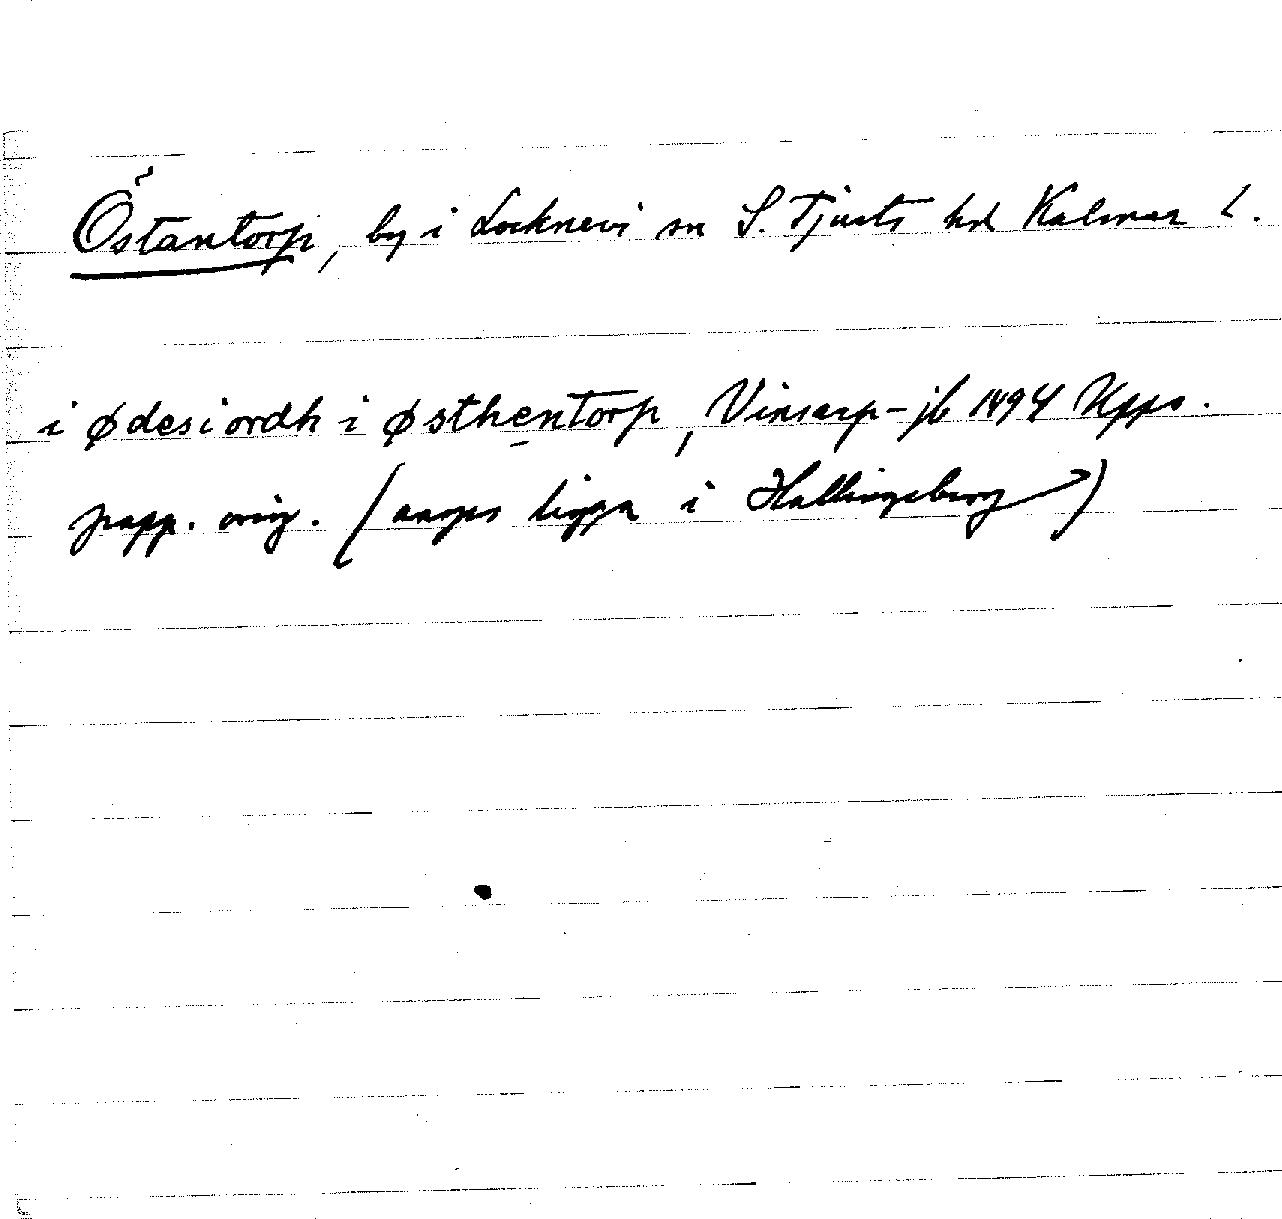 Östantorp, by i Locknevi sn S. Tjusts hd Kalmar l.
i ødesiordh i østhentorp, Vinsarp-jb 1494 Upps.
papp. orig. (anges ligga i Hallingeberg)